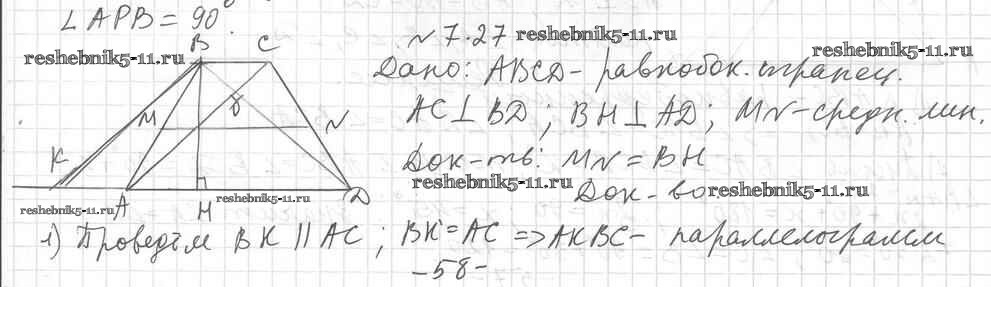 ∠APB = 90°.
№ 7.27 reshebnik5-11.ru
reshebnik5-11.ru
reshebnik5-11.ru
Дано: ABCD - равнобок. трапец.
AC⊥BD; BH⊥AD; MN - средн. лин.
Док-ть: MN = BH
reshebnik5-11.ru
Док-во: reshebnik5-11.ru
B C
M N
K
A H D
reshebnik5-11.ru
reshebnik5-11.ru
1) Проведём BK || AC; BK = AC => AKBC - параллелограмм
-58-